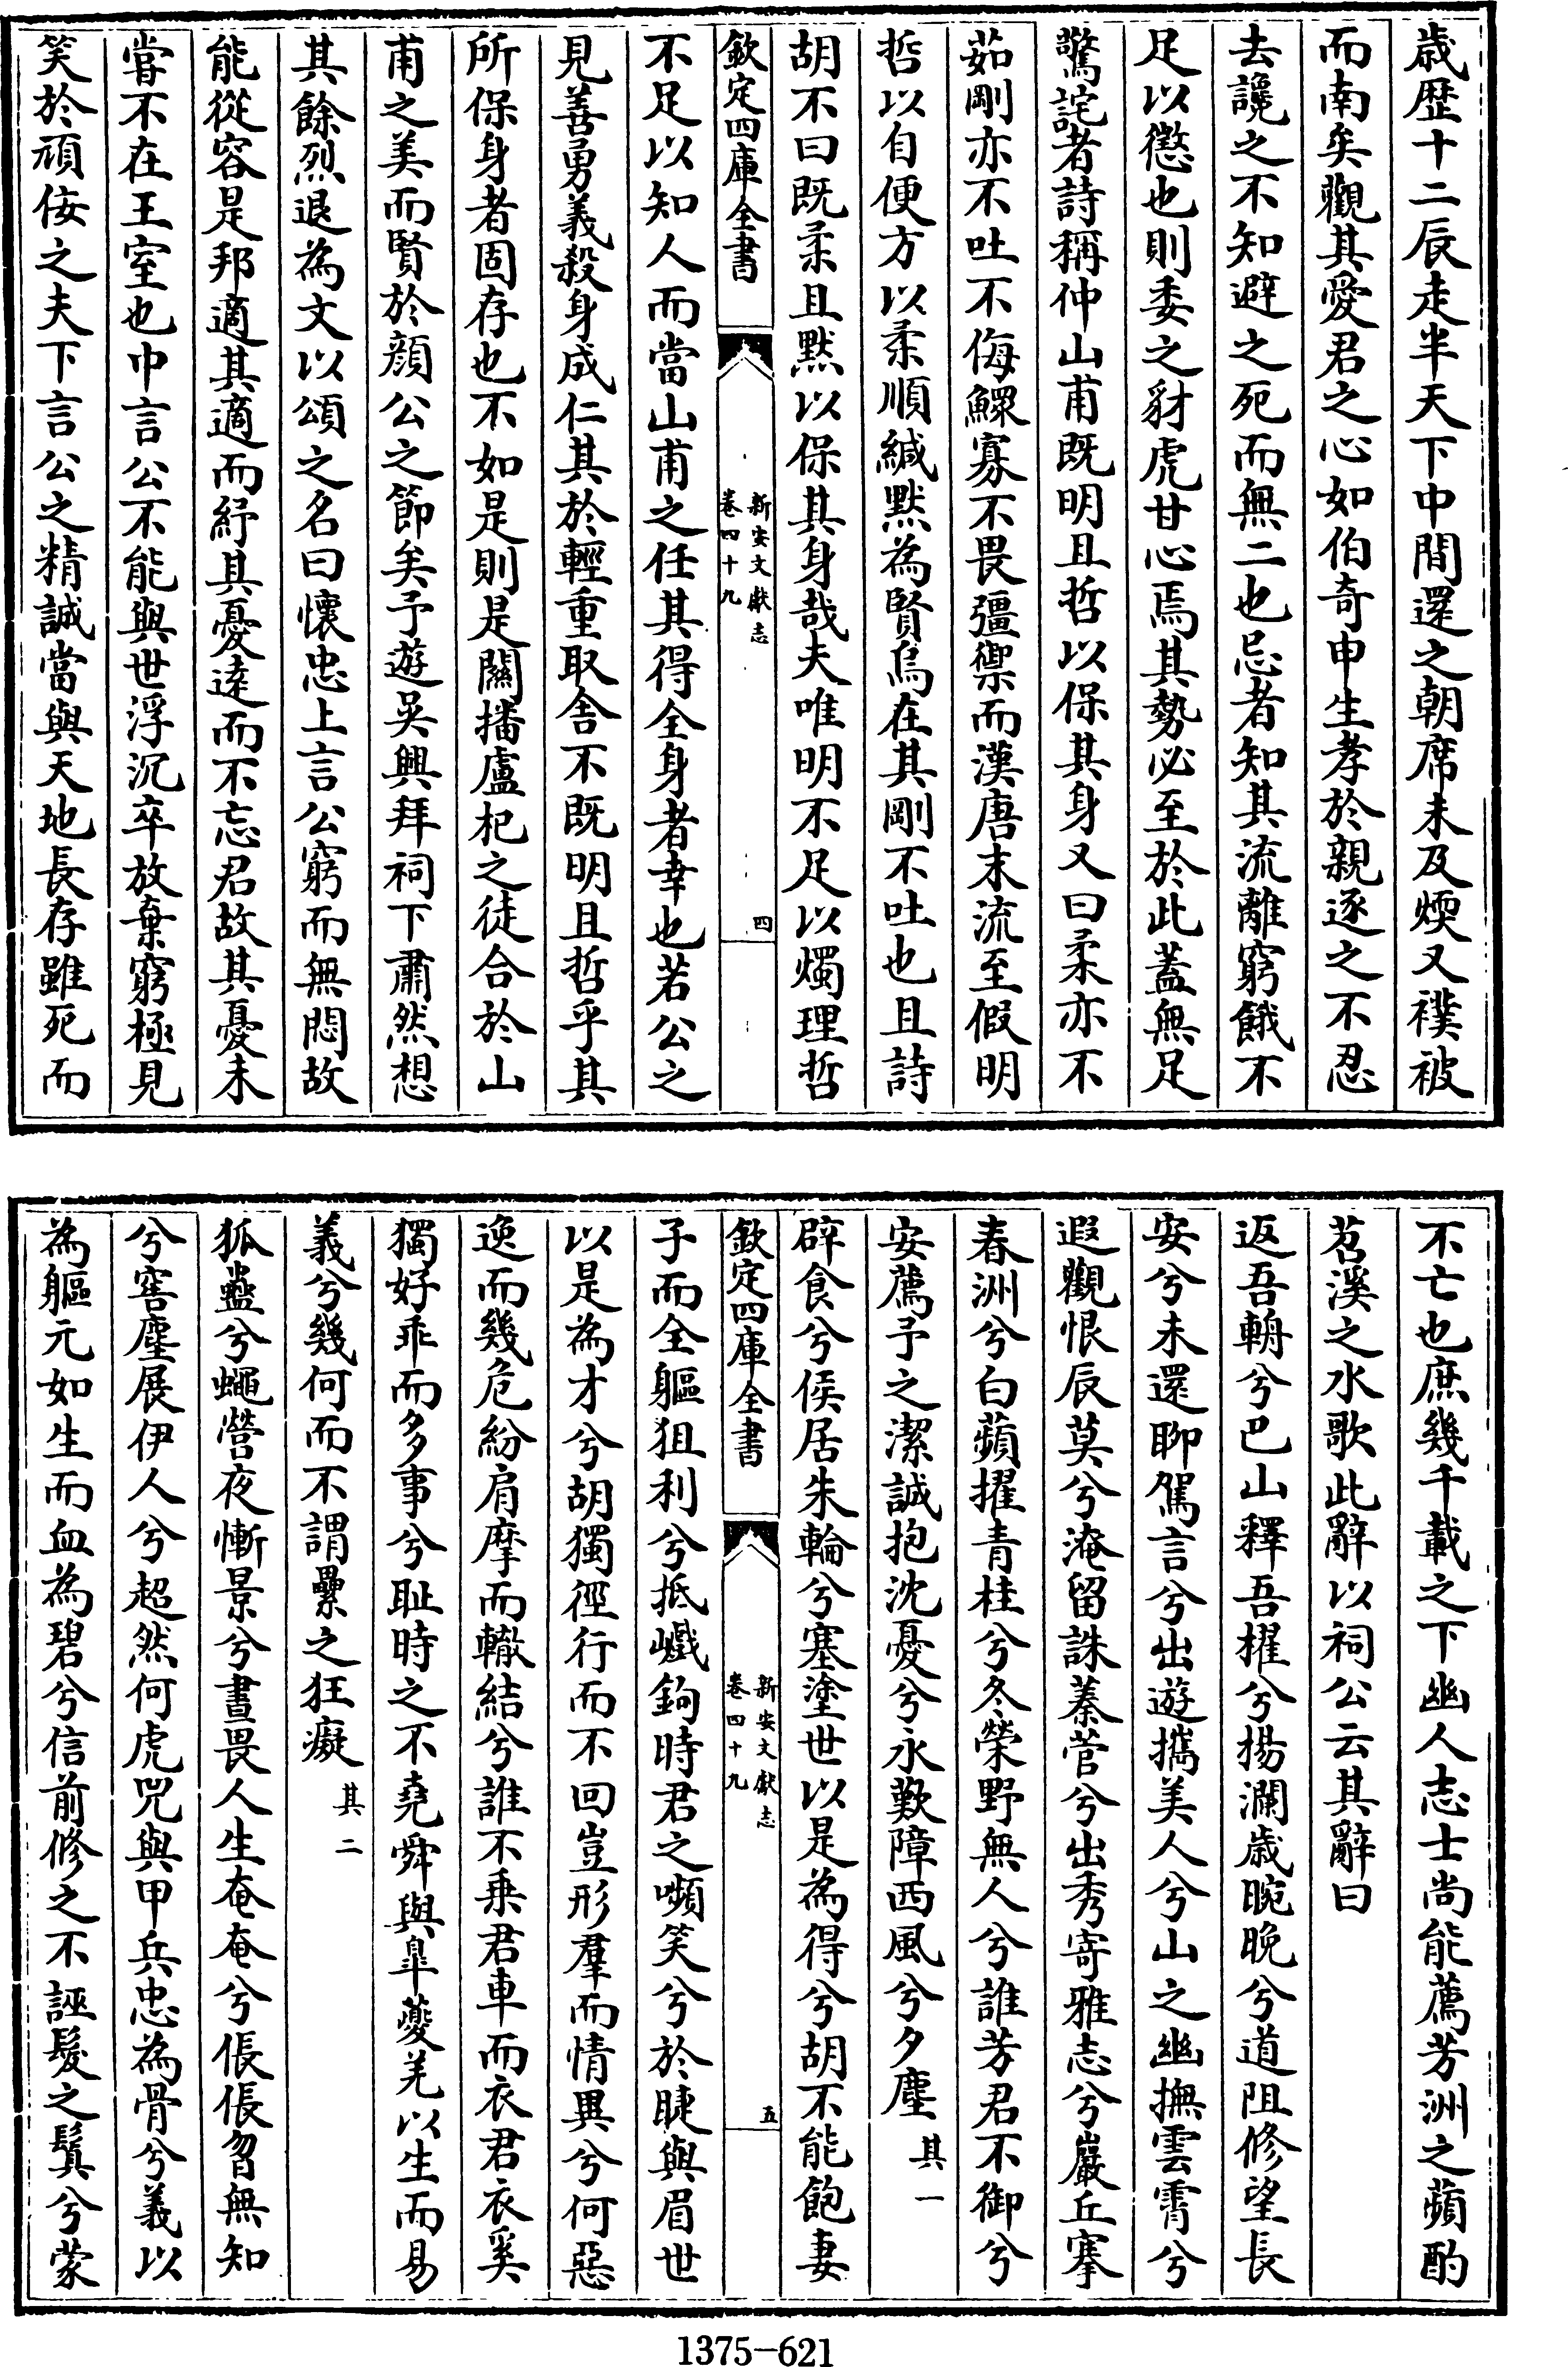 歲歴十二辰走半天下中間還之朝席未及煖又襆被
而南矣觀其愛君之心如伯奇申生孝於親逐之不忍
去讒之不知避之死而無二也忌者知其流離窮餓不
足以懲也則委之豺虎甘心焉其勢必至於此蓋無足
驚詫者詩稱仲山甫既明且哲以保其身又曰柔亦不
茹剛亦不吐不侮鰥寡不畏彊禦而漢唐末流至假明
哲以自便方以柔順緘默為賢烏在其剛不吐也且詩
胡不曰既柔且默以保其身哉夫唯明不足以燭理哲
欽定四庫全書
新安文獻志
卷四十九
四
不足以知人而當山甫之任其得全身者幸也若公之
見善勇義殺身成仁其於輕重取舍不既明且哲乎其
所保身者固存也不如是則是關播盧杞之徒合於山
甫之美而賢於顔公之節矣予遊吳興拜祠下肅然想
其餘烈退為文以頌之名曰懷忠上言公窮而無悶故
能從容是邦適其適而紓其憂逹而不忘君故其憂未
嘗不在王室也中言公不能與世浮沉卒放棄窮極見
笑於頑佞之夫下言公之精誠當與天地長存雖死而
不亡也庶幾千載之下幽人志士尚能薦芳洲之蘋酌
苕溪之水歌此辭以祠公云其辭曰
返吾輈兮巴山釋吾櫂兮揚瀾歲晼晚兮道阻修望長
安兮未還聊駕言兮出遊攜美人兮山之幽撫雲霄兮
遐觀恨辰莫兮淹留誅蓁菅兮出秀寄雅志兮巖丘搴
春洲兮白蘋擢青桂兮冬榮野無人兮誰芳君不御兮
安薦予之潔誠抱沈憂兮永歎障西風兮夕塵其一
辟食兮侯居朱輪兮塞塗世以是為得兮胡不能飽妻
欽定四庫全書
新安文獻志
卷四十九
五
子而全軀狙利兮抵巇鉤時君之嚬笑兮於睫與眉世
以是為才兮胡獨徑行而不回豈形羣而情異兮何惡
逸而幾危紛肩摩而轍結兮誰不乗君車而衣君衣奚
獨好乖而多事兮耻時之不堯舜與臯夔羌以生而易
義兮幾何而不謂纍之狂癡其二
狐蠱兮蠅營夜慚景兮晝畏人生奄奄兮倀倀曶無知
兮窖塵展伊人兮超然何虎兕與甲兵忠為骨兮義以
為軀元如生而血為碧兮信前修之不誣髮之鬒兮蒙
1375-621